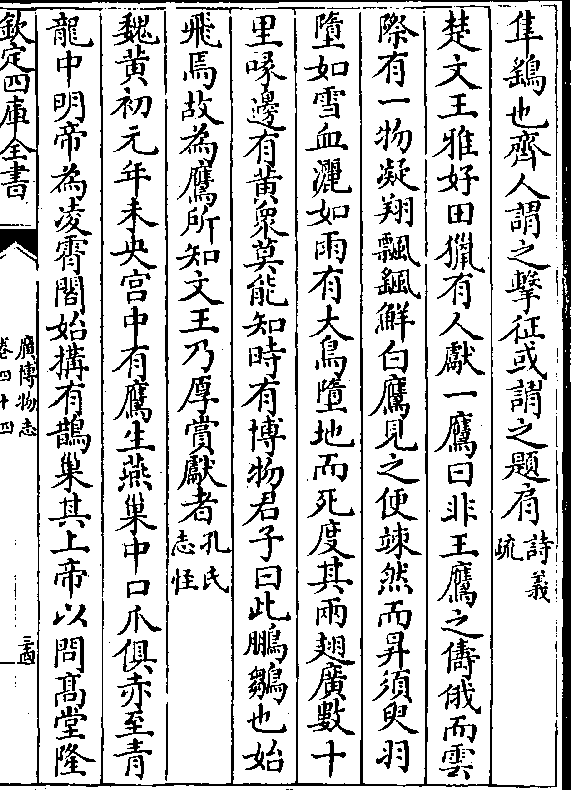 隼鷂也齊人謂之擊征或謂之題肩詩義疏
楚文王雅好田獵有人獻一鷹曰非王鷹之儔俄而雲
際有一物凝翔飄颻鮮白鷹見之便竦然而昇須臾羽
墮如雪血灑如雨有大鳥墮地而死度其兩翅廣數十
里喙邊有黃衆莫能知時有博物君子曰此鵬鶵也始
飛焉故為鷹所知文王乃厚賞獻者孔氏志怪
魏黃初元年未央宫中有鷹生燕巢中口爪俱赤至青
龍中明帝為凌霄閣始搆有鵲巢其上帝以問髙堂隆
欽定四庫全書
廣博物志
卷四十四